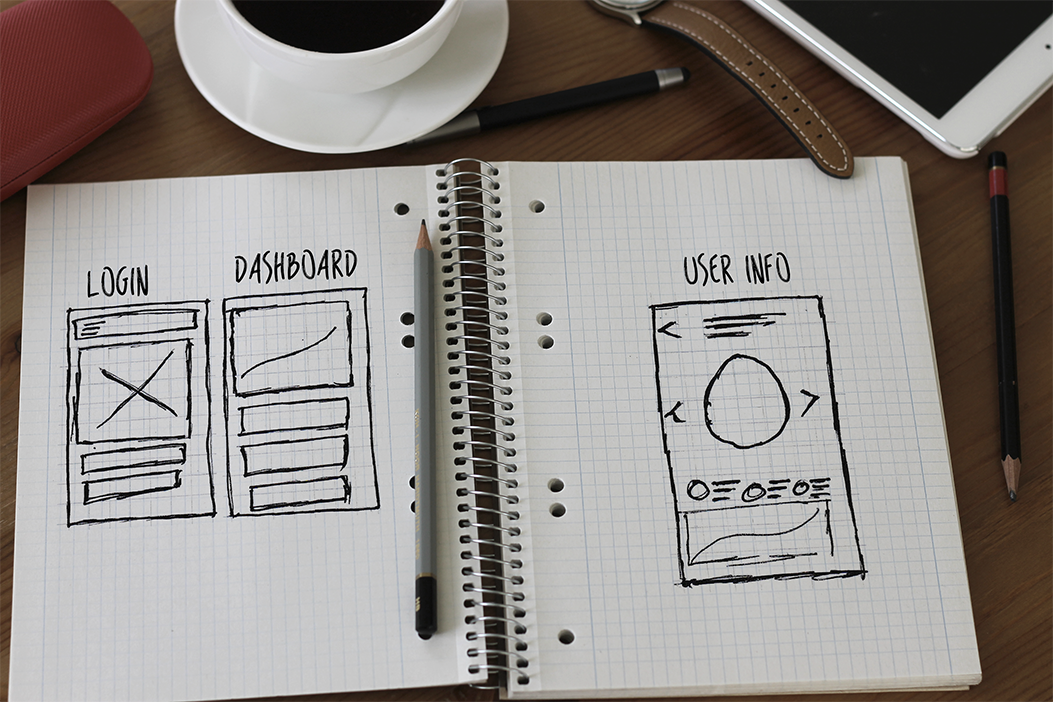 LOGIN
DASHBOARD
USER INFO